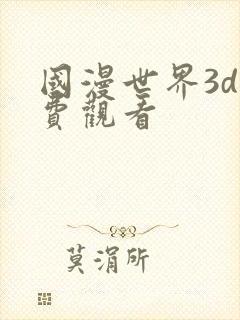 國漫世界3d
費觀看
莫涓所